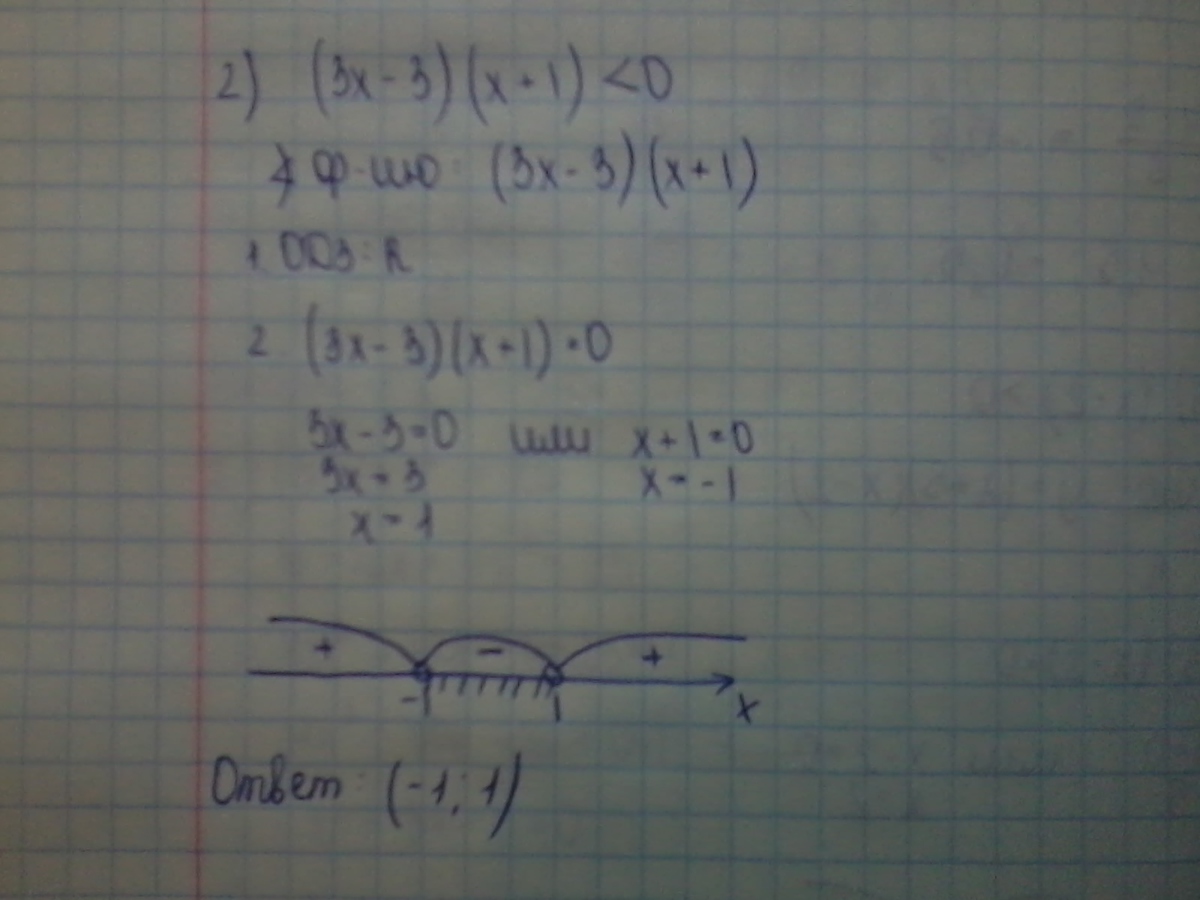 2) (3x-3)(x+1)<0
ф-цию: (3x-3)(x+1)
1. ОДЗ: R
2. (3x-3)(x+1)=0
3x-3=0 или x+1=0
3x=3 x=-1
x=1
+ - +
-1 1 x
Ответ: (-1; 1)